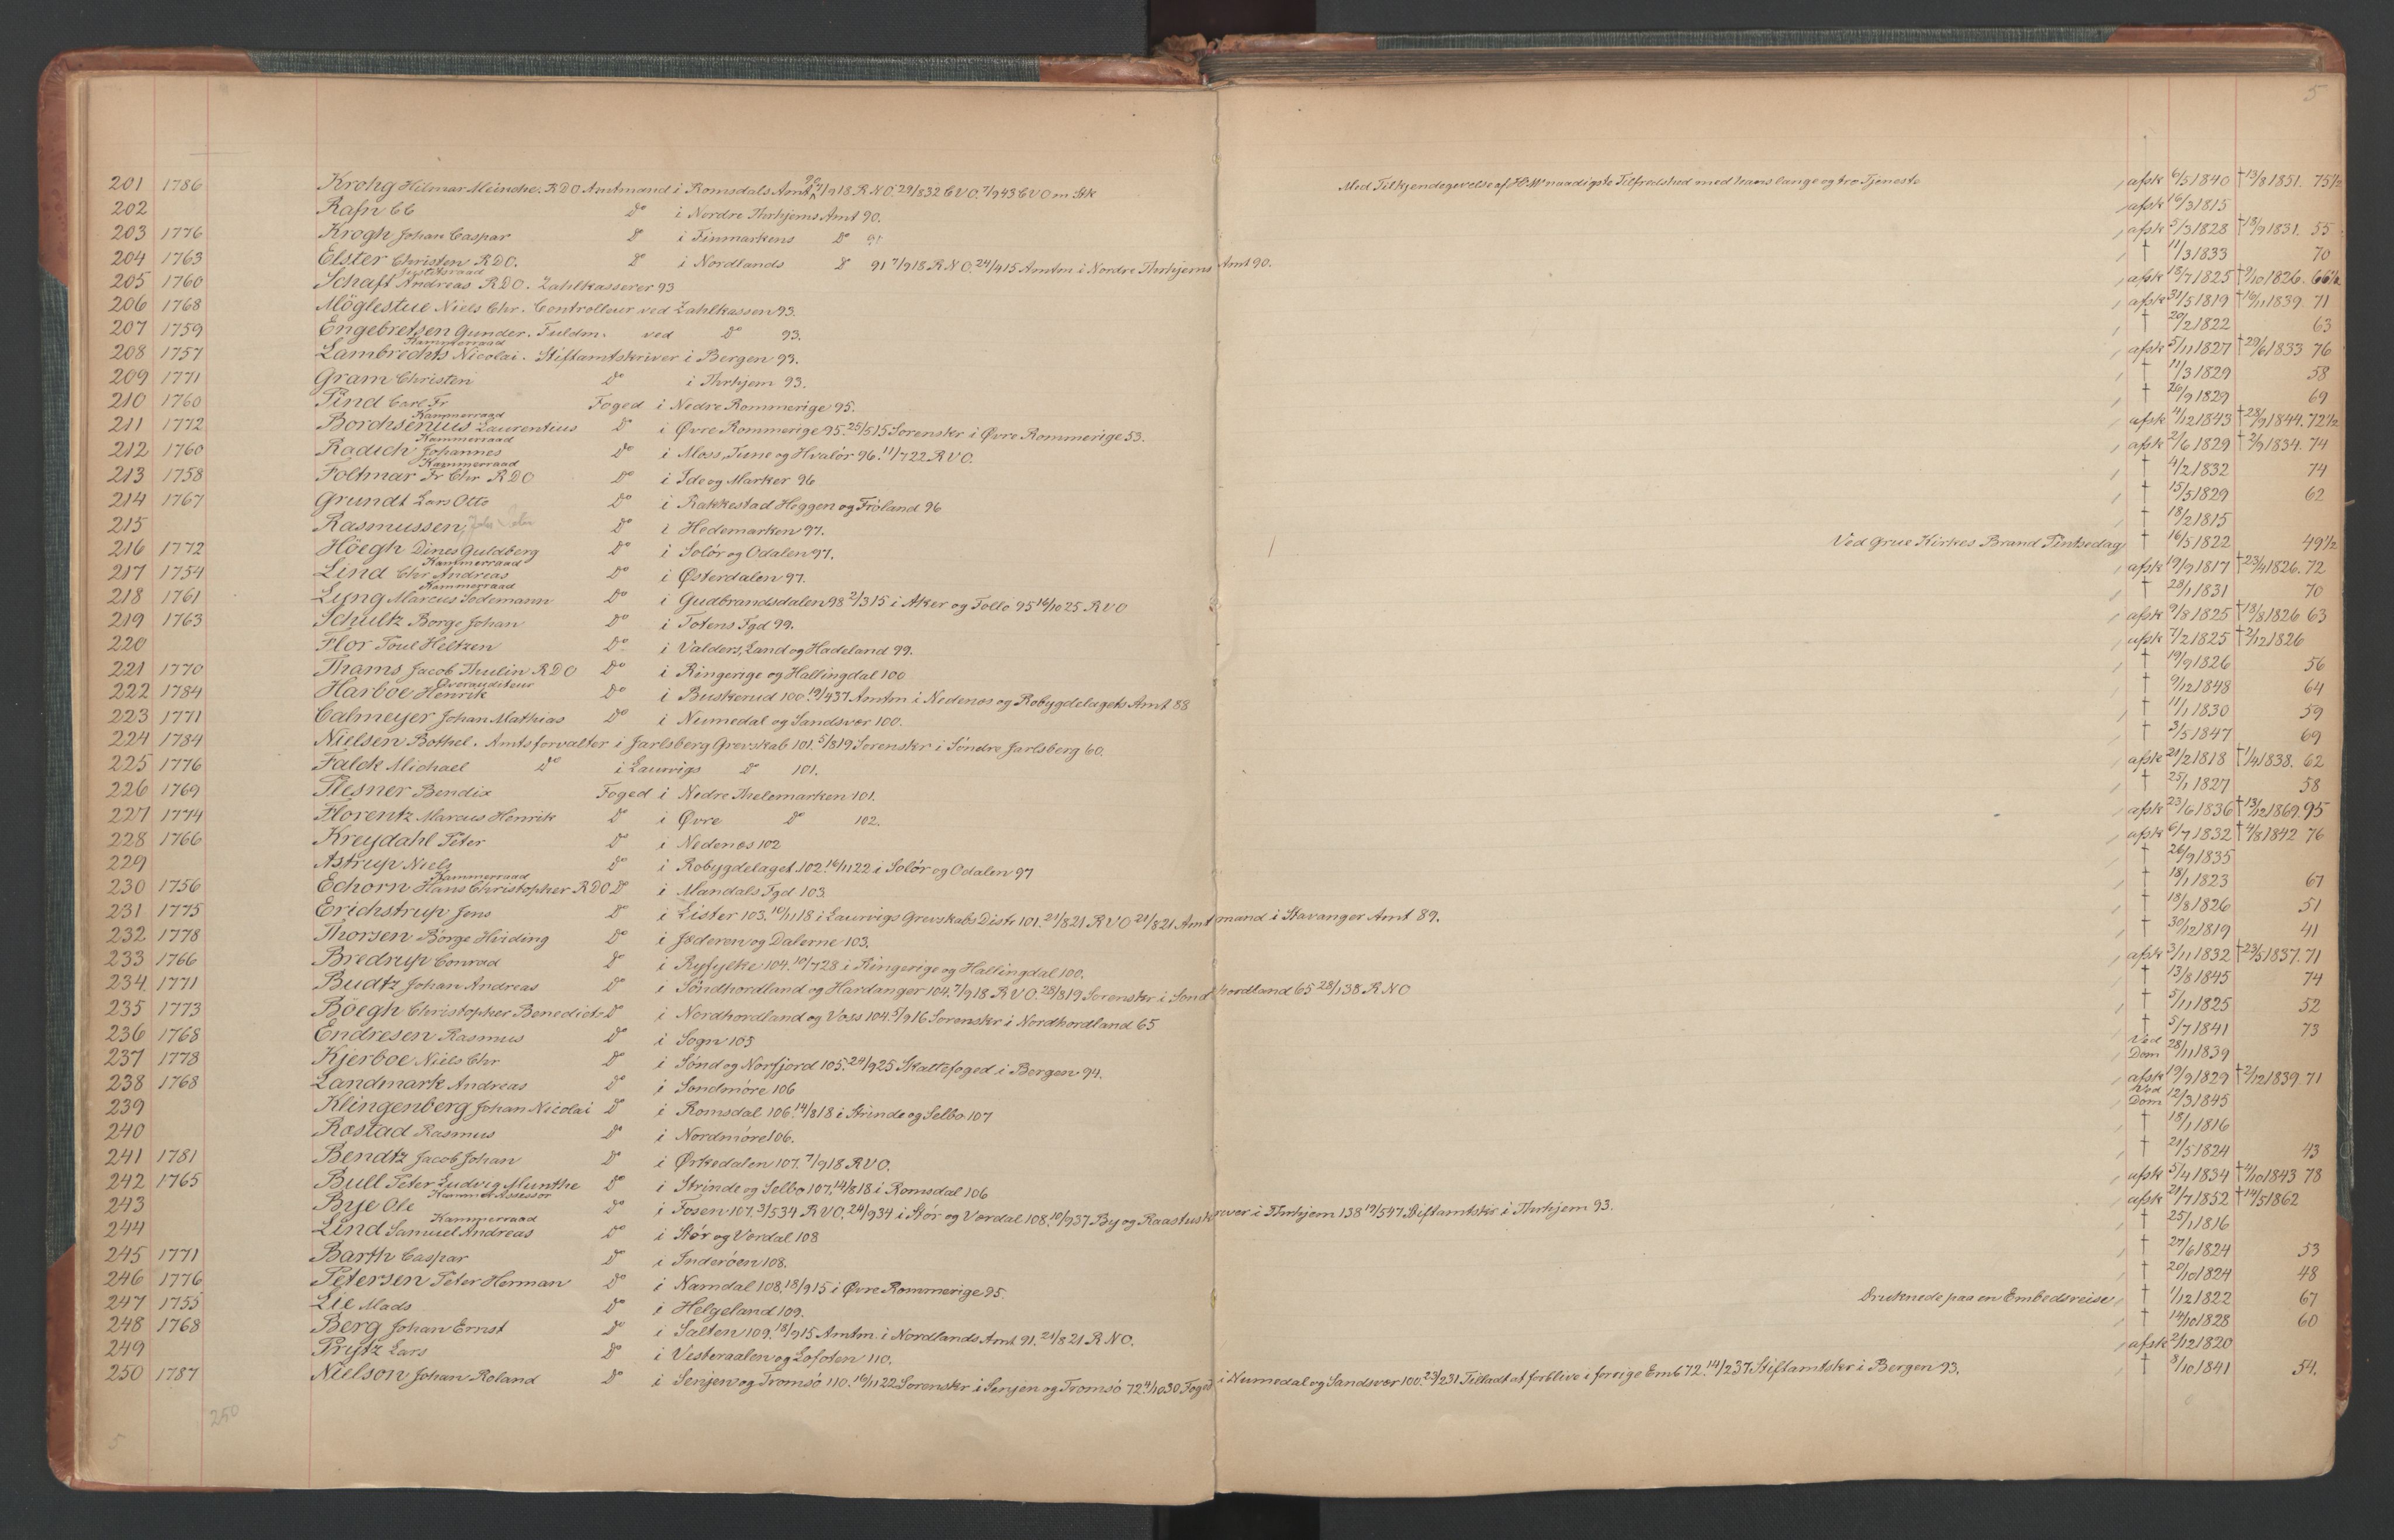 5
201 1786 Krohg Hilmar Meincke. RDO Amtmand i Romsdals Amt 90 7/918 RNO. 29/832 CVO. 7/943 CVO m Stk Med Tilkjendegivelse af H. M. naadigste Tilfredshed med hans lange og tro Tjeneste afsk 6/5 1840 † 13/8 1851. 75½
202 Rafn CC Do i Nordre Thrhjems Amt 90. afsk 16/3 1815
203 1776 Krogh Johan Caspar Do i Finmarkens Do 91 afsk 5/3 1828 † 13/9 1831. 55
204 1763 Elster Christen RDO. Do i Nordlands Do 91 7/918 RNO. 24/415 Amtm i Nordre Thrhjems Amt 90. † 11/3 1833 70
205 1760 Schaft Justitsraad Andreas RDO. Zahlkasserer 93 afsk 18/7 1825 † 9/10 1826. 66½
206 1768 Möglestue Niels Chr. Controlleur ved Zahlkassen 93. afsk 31/5 1819 † 16/11 1839. 71
207 1759 Engebretsen Gunder. Fuldm. ved Do 93. † 20/2 1822 63
208 1757 Lambrechts Kammerraad Nicolai. Stiftamtskriver i Bergen 93. afsk 5/11 1827 † 29/6 1833 76
209 1771 Gram Christen Do i Thrhjem 93. † 11/3 1829 58
210 1760 Pind Carl Fr. Foged i Nedre Rommerige 95. † 26/9 1829 69
211 1772 Borchsenius Kammerraad Laurentius Do i Øvre Rommerige 95. 25/515 Sorenskr i Øvre Rommerige 53. afsk 4/12 1843 † 28/9 1844. 72½
212 1760 Radich Kammerraad Johannes Do i Moss, Tune og Hvalör 96. 11/722 RVO. afsk 2/6 1829 † 2/9 1834. 74
213 1758 Foltmar Kammerraad Fr Chr RDO Do i Ide og Marker 96 † 4/2 1832 74
214 1767 Grundt Lars Otto Do i Rakkestad Heggen og Fröland 96 † 15/5 1829 62
215 Rasmussen, Do i Hedemarken 97. † 18/2 1815
216 1772 Höegh Dines Guldberg Do i Solör og Odalen 97. Ved Grue Kirkes Brand Pintsedag † 16/5 1822 49½
217 1754 Lind Kammerraad Chr Andreas Do i Østerdalen 97. afsk 19/9 1817 † 23/4 1826. 72
218 1761 Lyng Kammerraad Marcus Sodemann Do i Gudbrandsdalen 98 2/315 i Aker og Follo 95 16/1025 RVO † 28/1 1831 70
219 1763 Schultz Borge Johan Do i Totens Fgd 99. afsk 9/8 1825 † 18/8 1826 63
220 Flor Poul Heltzen Do i Valders, Land og Hadeland 99. afsk 7/2 1825 † 2/12 1826
221 1770 Thams Jacob Thulin RDO Do i Ringerige og Hallingdal 100 † 19/9 1826 56
222 1784 Harboe Overauditeur Henrik Do i Buskerud 100. 19/437 Amtm i Nedenes og Robygdelagets Amt 88 † 9/12 1848 64
223 1771 Calmeyer Johan Mathias Do i Numedal og Sandsvær 100. † 11/1 1830 59
224 1784 Nielsen Bothel. Amtsforvalter i Jarlsberg Grevskab 101. 5/819 Sorenskr i Söndre Jarlsberg 60. † 3/5 1847 69
225 1776 Falck Michael Do i Laurvigs Do 101. afsk 21/2 1818 † 1/4 1838. 62
226 1769 Plesner Bendix Foged i Nedre Thelemarken 101. † 25/1 1827 58
227 1774 Florentz Marcus Henrik Do i Øvre Do 102. afsk 23/6 1836 † 13/12 1869. 95
228 1766 Kreydahl Peter Do i Nedenes 102 afsk 6/7 1832 † 4/8 1842 76
229 Astrup Niels Do i Robygdelaget 102. 16/1122 i Solör og Odalen 97 † 26/9 1835
230 1756 Echorn Kammerraad Hans Christopher RDO Do i Mandals Fgd 103 † 18/1 1823 67
231 1775 Erichstrup Jens Do i Lister 103. 10/1118 i Laurvigs Grevskabs Distr 101. 21/821 RVO 21/821 Amtmand i Stavanger Amt 89. † 18/8 1826 51
232 1778 Thorsen Börge Hviding Do i Jæderen og Dalerne 103. † 30/12 1819 41
233 1766 Bredrup Conrad Do i Ryfylke 104. 10/728 i Ringerige og Hallingdal 100. afsk 3/11 1832 † 23/5 1837. 71
234. 1771 Budtz Johan Andreas Do i Söndhordland og Hardanger 104. 7/918 RVO. 28/819 Sorenskr i Sondhordland 65 28/138 RNO † 13/8 1845 74
235 1773 Böegh Christopher Benedict Do i Nordhordland og Voss 104. 5/916 Sorenskr i Nordhordland 65 † 5/11 1825 52
236 1768 Endresen Rasmus Do i Sogn 105 † 5/7 1841 73
237 1778 Kjerboe Niels Chr Do i Sönd og Norfjord 105. 24/925 Skattefoged i Bergen 94. Ved Dom 28/11 1839
238 1768 Landmark Andreas Do i Sondmöre 106 afsk 19/9 1829 † 2/12 1839 71
239 Klingenberg Johan Nicolai Do i Romsdal 106. 14/818 i Strinde og Selbo 107 Ved Dom 12/3 1845
240 Rostad Rasmus Do i Nordmöre 106. † 18/1 1816
241 1781 Bendtz Jacob Johan Do i Ørkedalen 107. 7/918 RVO. † 21/5 1824 43
242 1765 Bull Peter Ludvig Munthe Do i Strinde og Selbo 107. 14/818 i Romsdal 106 afsk 5/4 1834 † 4/10 1843 78
243 Bye KammerAssessor Ole Do i Fosen 107. 3/534 RVO. 24/934 i Stör og Værdal 108. 10/937 By og Raastuskriver i Thrhjem 138 19/547 Stiftamtskr i Thrhjem 93. afsk 21/7 1852 † 14/5 1862
244 Lind Kammerraad Samuel Andreas Do i Stör og Verdal 108 † 25/1 1816
245 1771 Barth Caspar Do i Inderöen 108. † 27/6 1824 53
246 1776 Petersen Peter Herman Do i Namdal 108. 18/915 i Øvre Rommerige 95. † 20/10 1824 48
247 1755 Lie Mads Do i Helgeland 109. Druknede paa en Embedsreise † 1/12 1822 67
248 1768 Berg Johan Ernst Do i Salten 109. 18/915 Amtm. i Nordlands Amt 91. 21/821 RNO. † 14/10 1828 60
249 Prytz Lars Do i Vesteraalen og Lofoten 110. afsk 2/12 1820
250 1787 Nielson Johan Roland Do i Senjen og Tromsö 110. 16/1122 Sorenskr i Senjen og Tromsö 72. 4/1030 Foged i Numedal og Sandsvær 100. 23/231 Tilladt at forblive i forrige Emb 72. 14/237 Stiftamtskr i Bergen 93. † 3/10 1841 54.
250
5